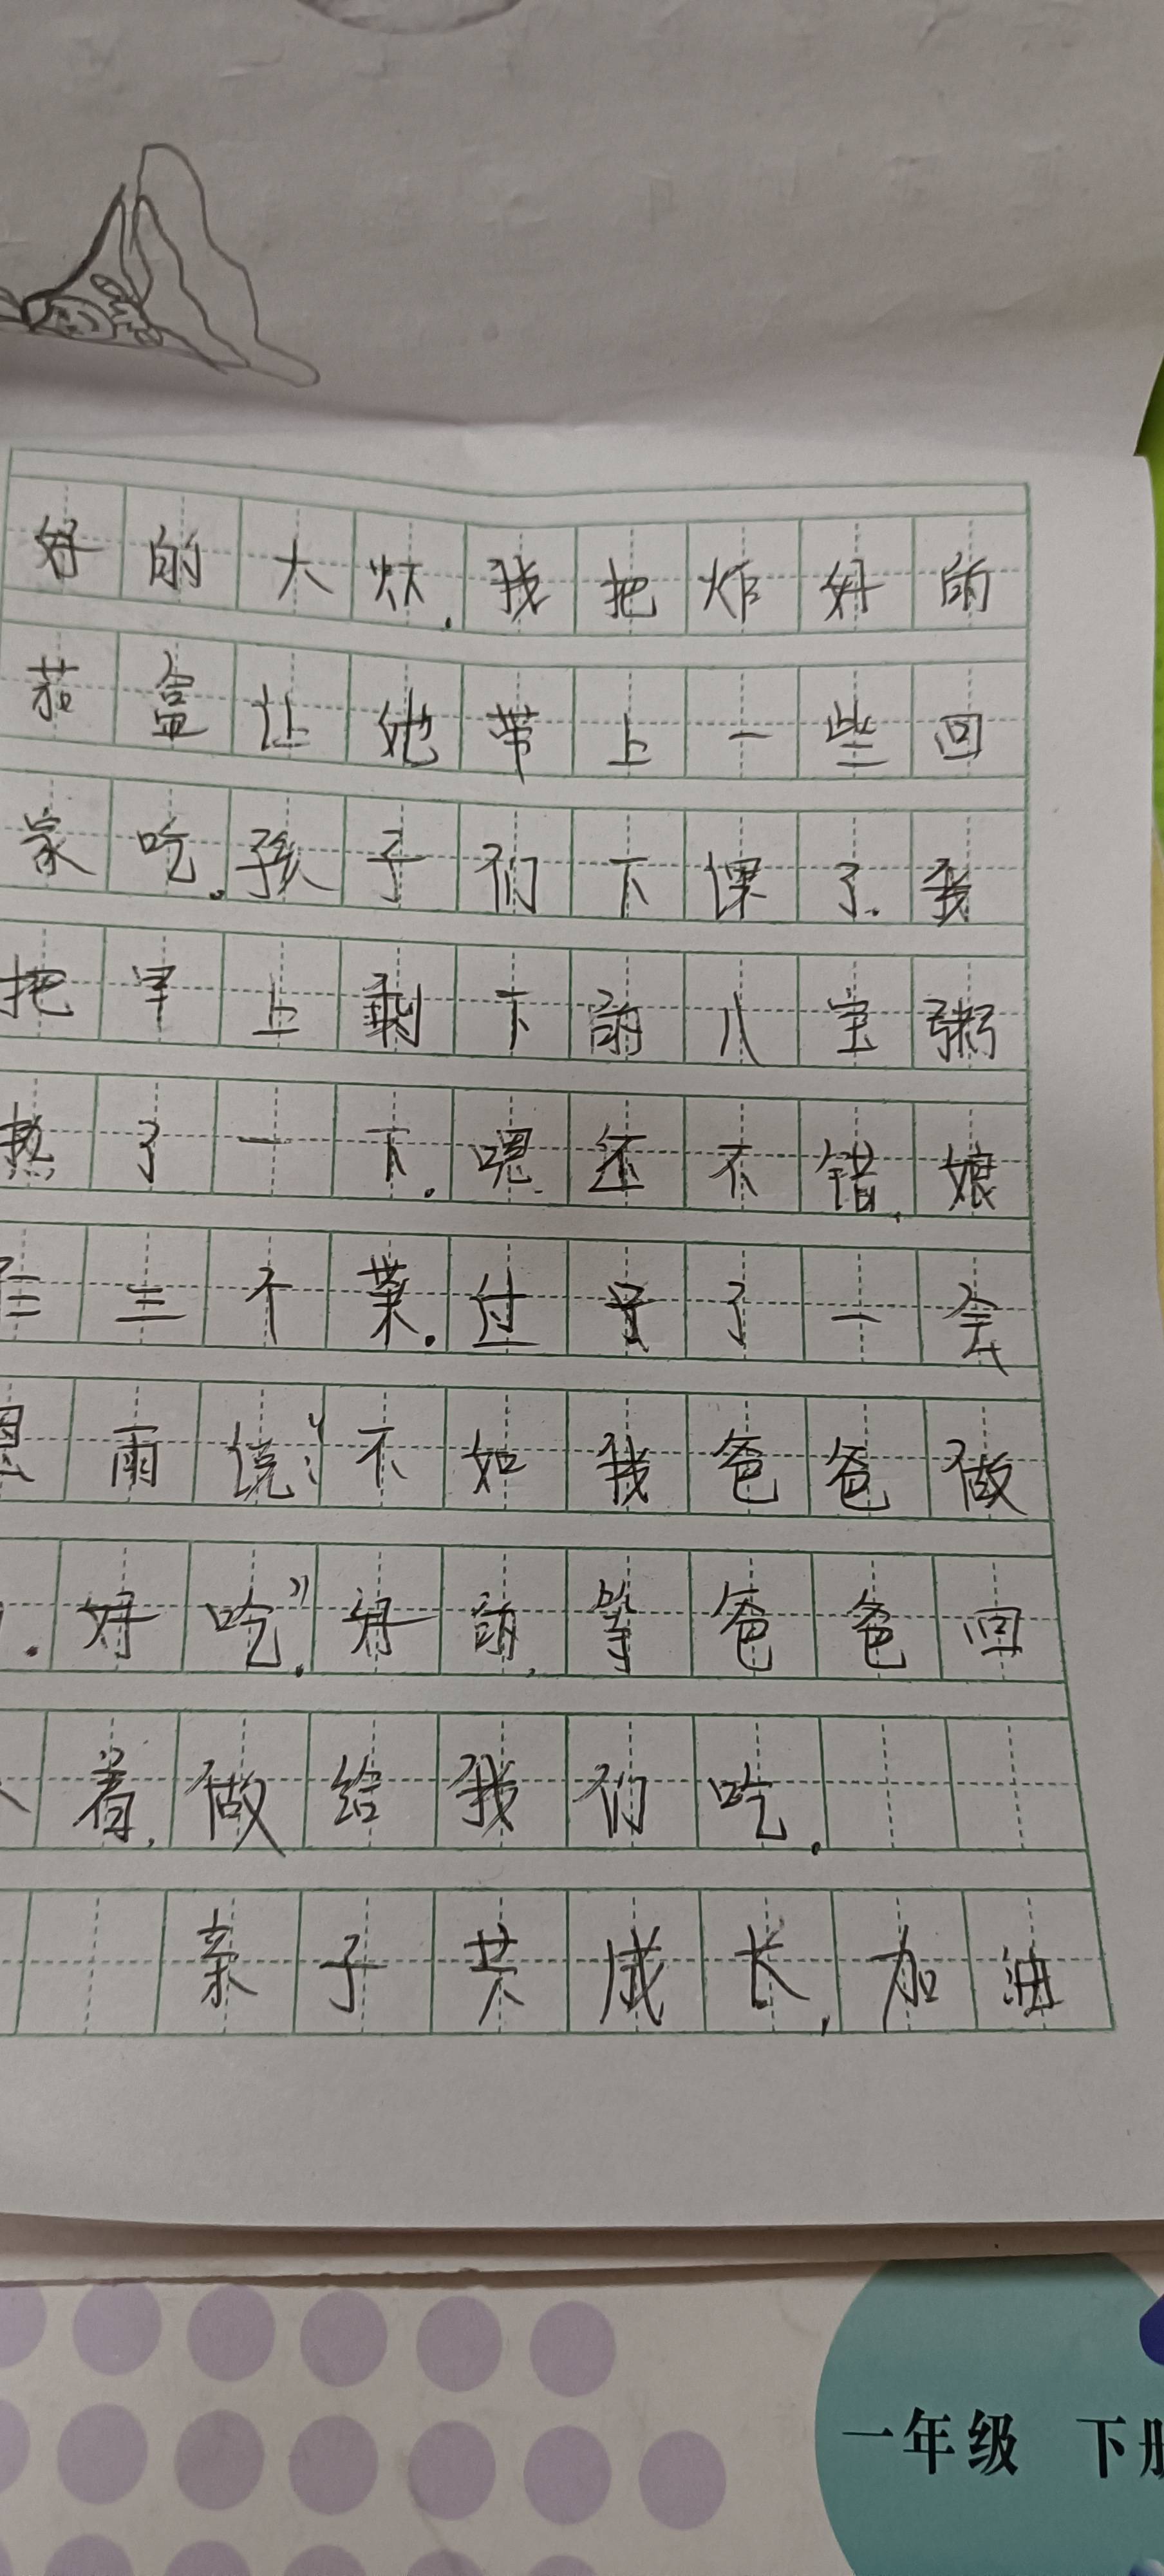 好的大炊.我把炸好的
茄盒让她带上一些回
家吃.孩子们下课了.我
把早上剩下的八宝粥
热了一下.嗯.还不错,娘
仨三个菜.过了一会
恩雨说:“不如我爸爸做
.好吃”.好的,等爸爸回
着,做给我们吃.
亲子共成长,加油
一年级 下册